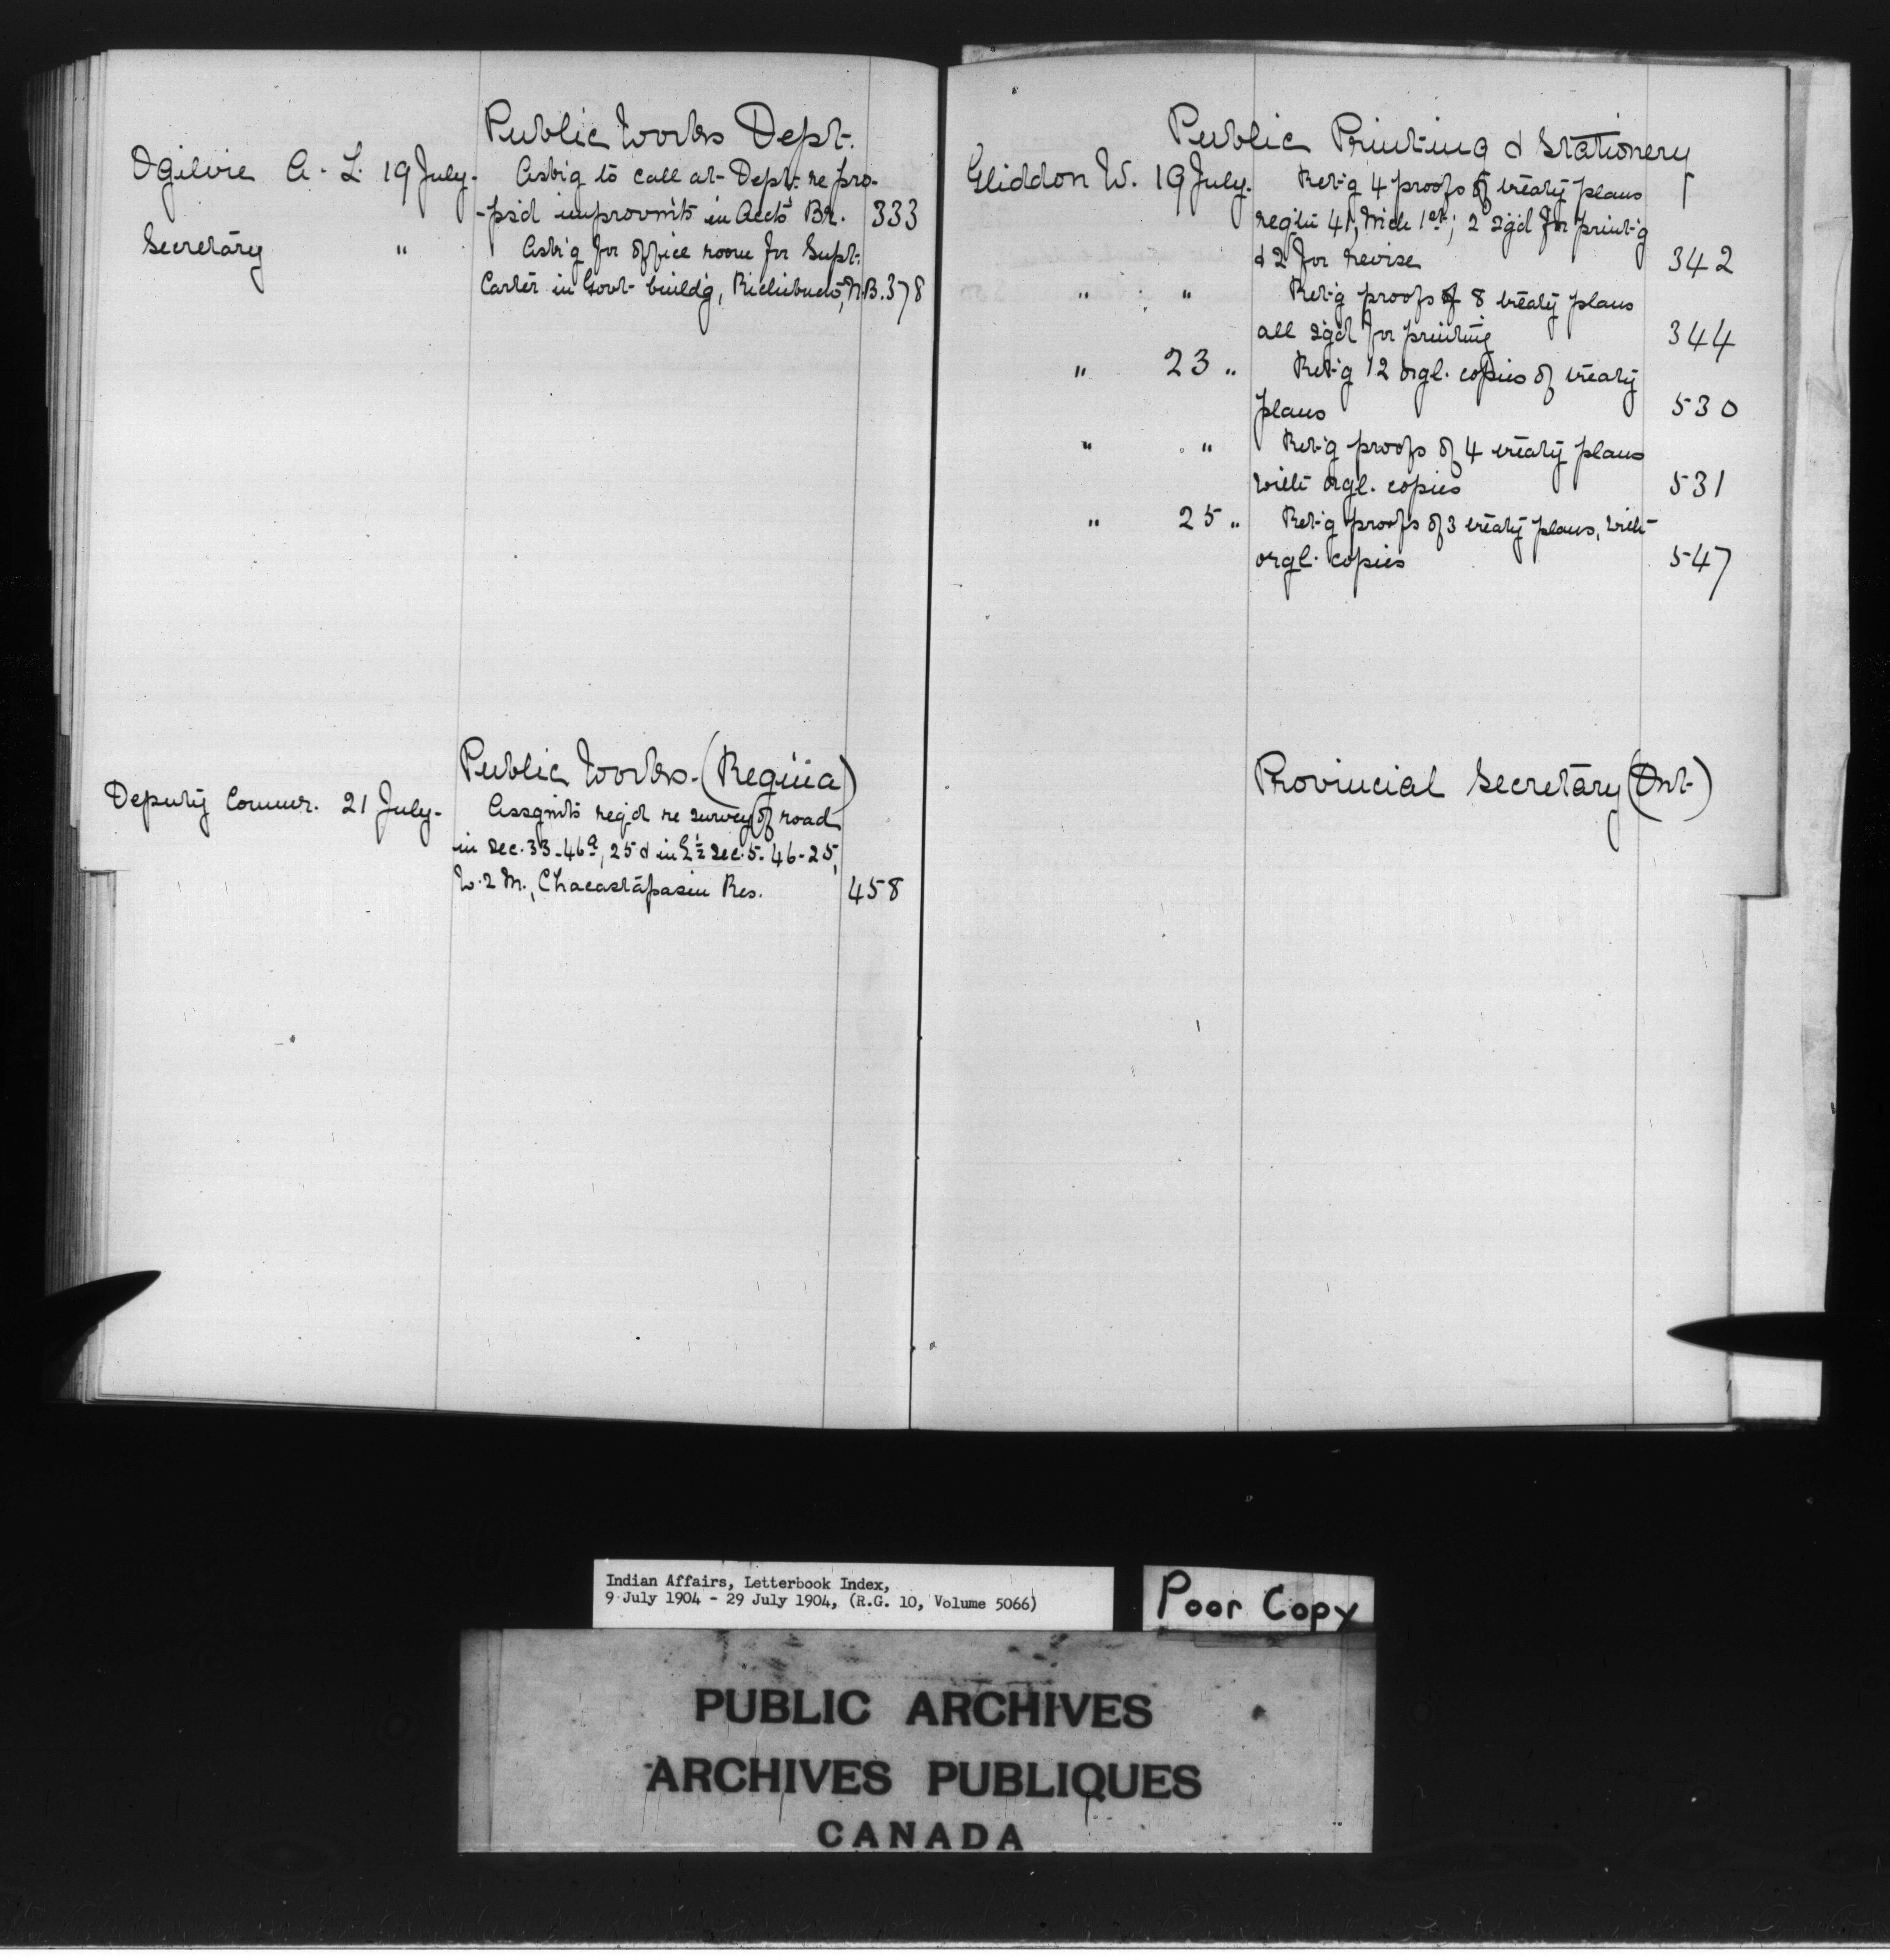 Public Works Dept.
Ogilvie A. L. 19 July. Ask'g to call at Dept. re pro-
-ps'd improvm'ts in Accts' Br. 333
Secretary " Ask'g for office room for Supt.
Carter in Govt buildg, Richibucto, N.B. 378
Public Works. (Regina)
Deputy Commr. 21 July. Assgmts req'd re survey of road
in Sec. 33-46a, 25 & in E½ Sec. 5-46-25,
W. 2 M., Chacastapasin Res. 458
Public Printing & Stationery
Gliddon W. 19 July. Ret'g 4 proofs of treaty plans
1st; 2 sg'd for print'g
& 2 for revise 342
" " Ret'g proofs of 8 treaty plans
all sg'd for printing 344
" 23 " Ret'g 12 orgl. copies of treaty
plans 530
" " Ret'g proofs of 4 treaty plans
with orgl. copies 531
" 25 " Ret'g proofs of 3 treaty plans, with
orgl. copies 547
Provincial Secretary (Ont)
Indian Affairs, Letterbook Index,
9 July 1904 - 29 July 1904, (R.G. 10, Volume 5066)
Poor Copy
PUBLIC ARCHIVES
ARCHIVES PUBLIQUES
CANADA